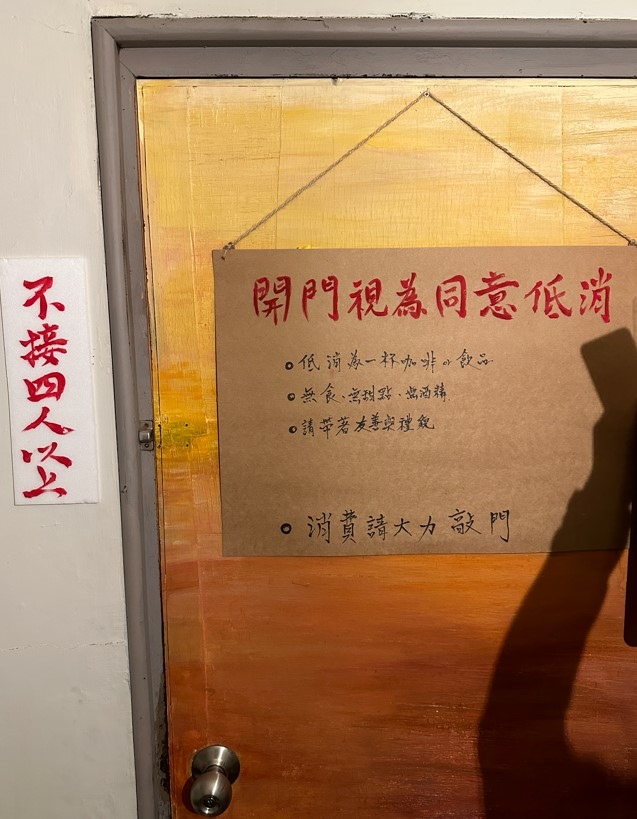 開門視為同意低消
低消為一杯咖啡or飲品
無食、無甜點、無酒精
請帶著友善與禮貌
消費請大力敲門
不接四人以上